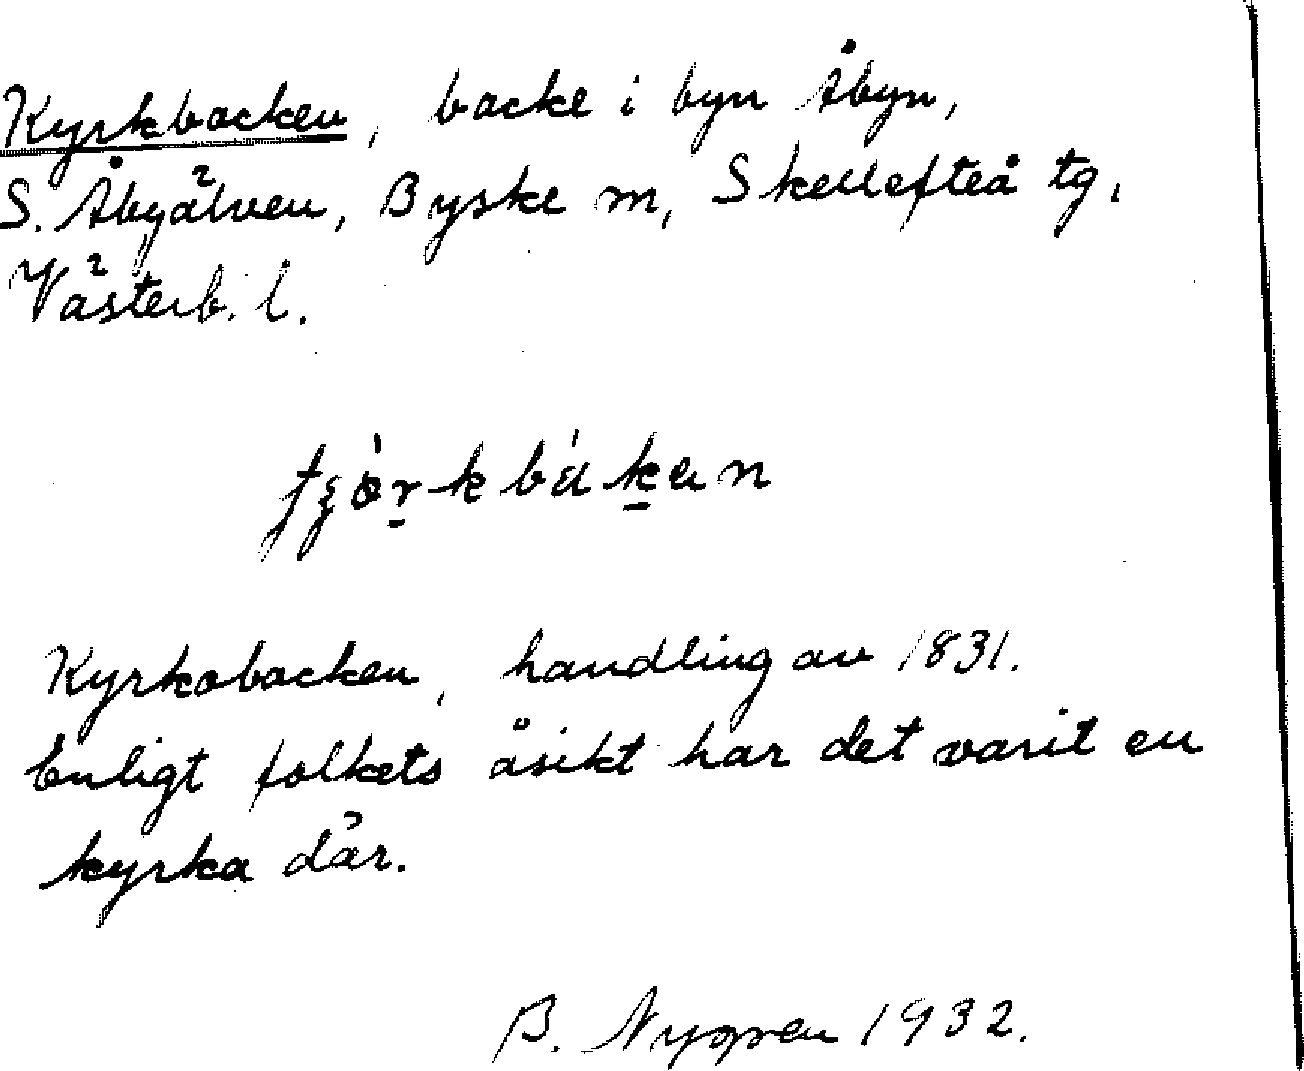 Kyrkbacken, backe i byn Åbyn,
S. Åbyälven, Byske sn, Skellefteå tg,
Västerb. l.
Kyrkobacken, handling av 1831.
Enligt folkets åsikt har det varit en
kyrka där.
B. Nygren 1932.